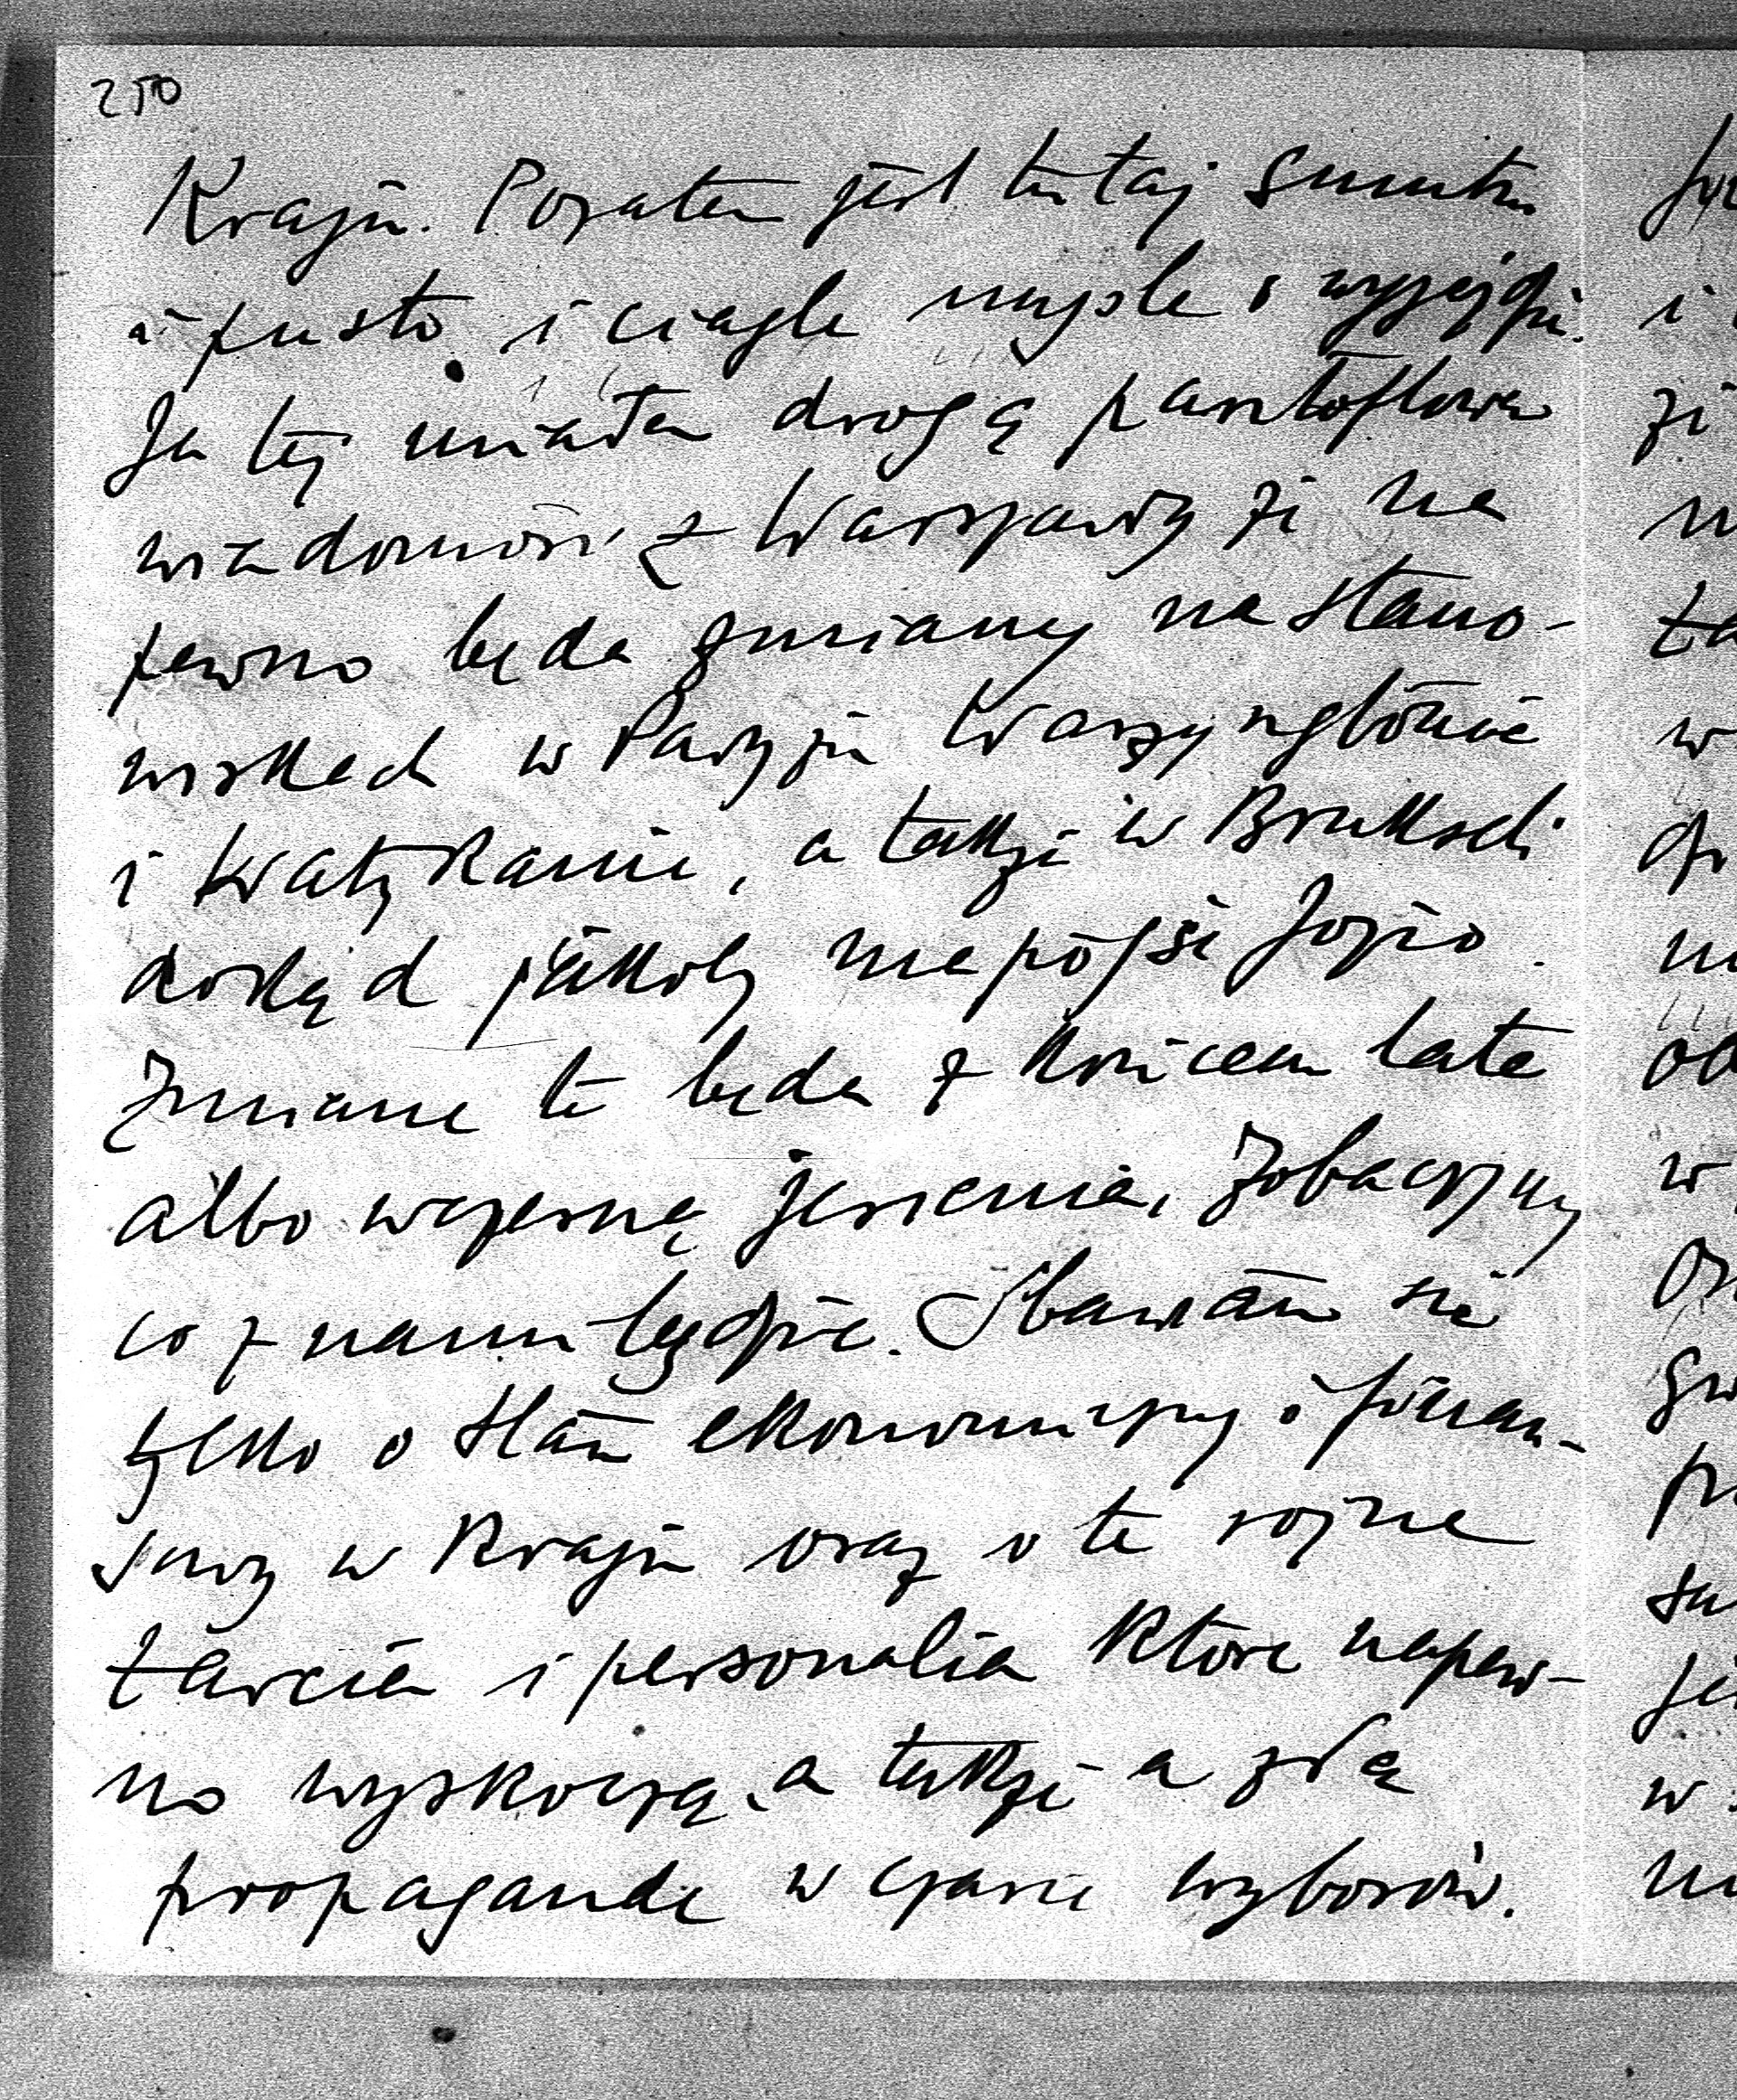 250
Kraju. Pozatem jest tutaj smutno
i pusto i ciągle myślę o wyjeździe.
Ja też miałam drogą pantoflową
wiadomość z Warszawy że na
pewno będą zmiany na stano-
wiskach w Paryżu Waszyngtonie
i Watykanie, a także w Brukseli
dokąd jakoby ma pójść Józio.
Zmiane te będą z końcem lata
albo wczesną jesienią, zobaczymy
co z nami będzie. Obawiam się
tylko o stan ekonomiczny i finan-
sowy w Kraju oraz o te rożne
tarcia i personalia które napew-
no wyskoczą, a także a złą
propagandę w czasie wyborów.